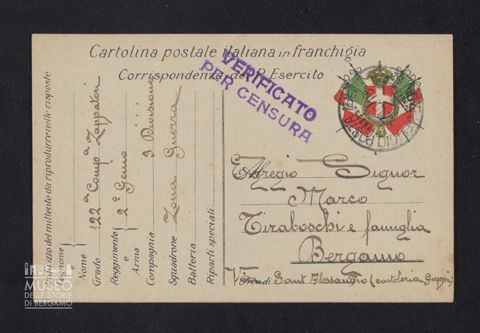 Cartolina postale italiana in franchigia
Corrispondenza del R. Esercito
VERIFICATO
PER CENSURA
Egregio Signor
Marco
Tiraboschi e famiglia
Bergamo
Via Sant Alessandro (cartoleria Greppi)
Indirizzo del mittente da riprodurre nelle risposte
Cognome
e
Nome
Grado 122ª Compª Zappatori
Reggimento 2º Genio
e
Arma
Compagnia 3 Divisione
Squadrone Zona Guerra
Batteria
Riparti speciali
MUSEO
DELLE STORIE
DI BERGAMO